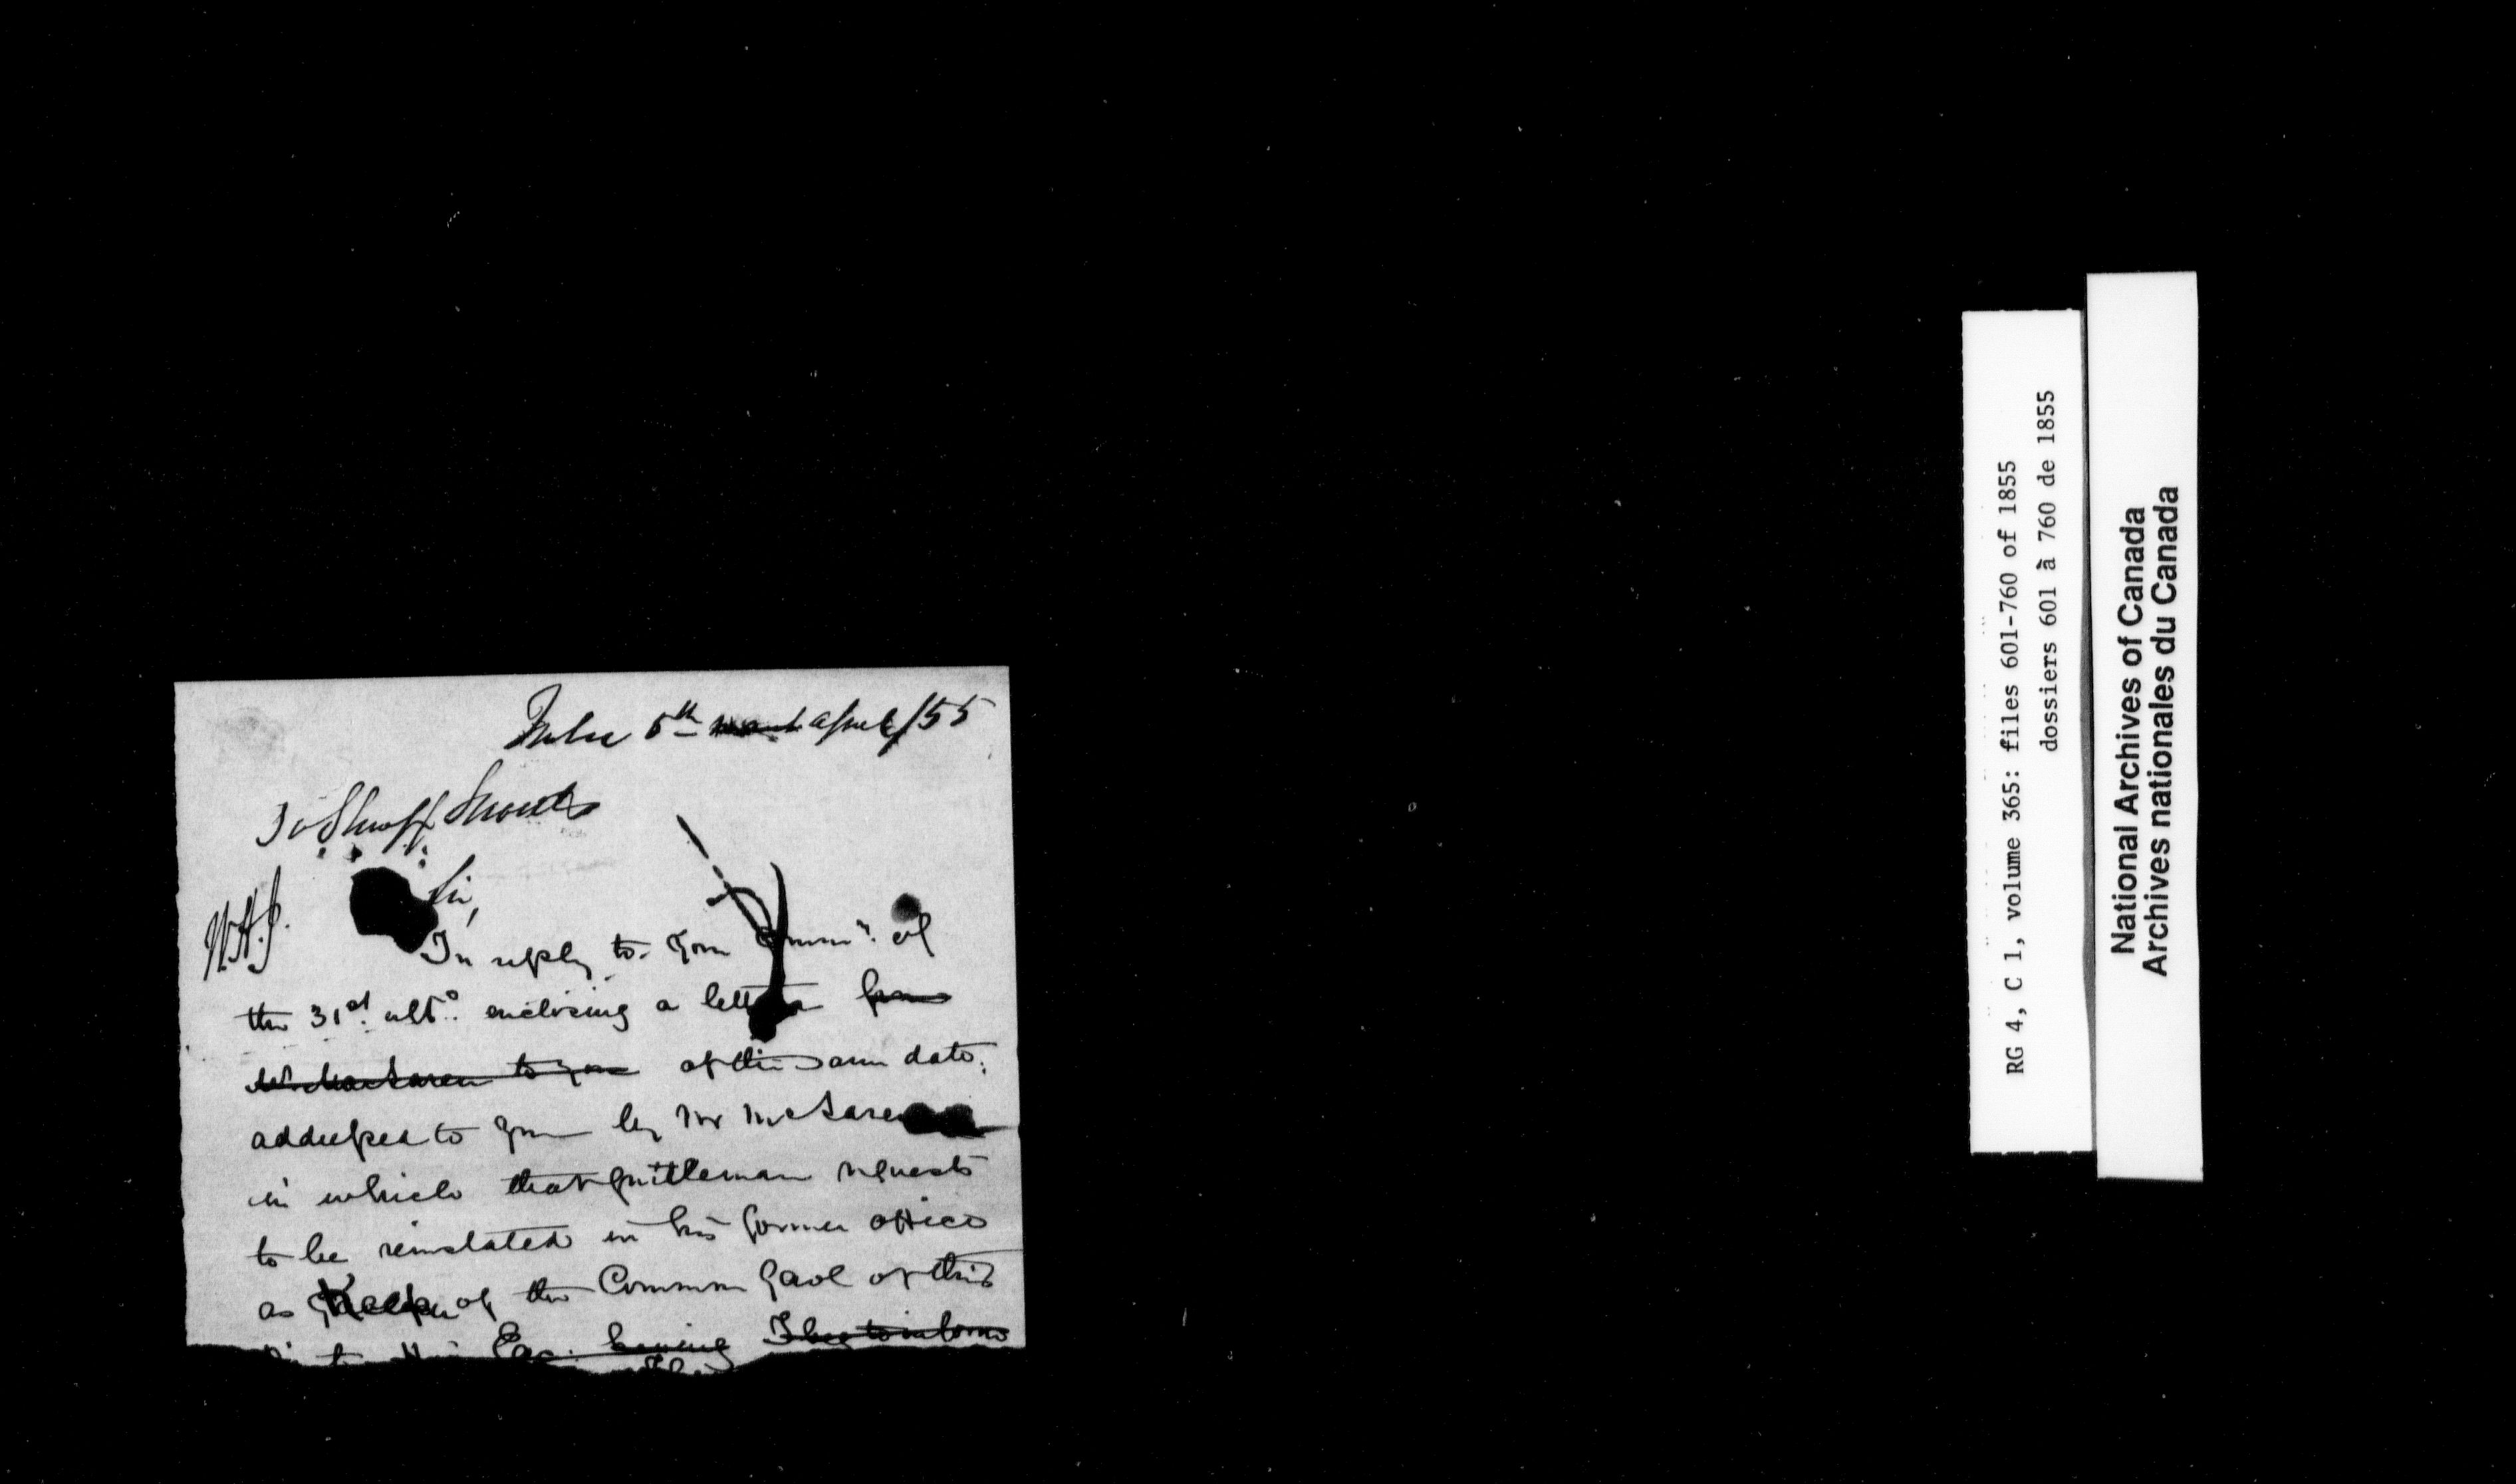 5th ~~march~~ april/55
To Sheriff
W.H.J.
Sir,
In reply to your Commn. of
the 31st. ulto. enclosing a letter ~~from~~
~~Mr. MacLaren to you~~ of the same date,
addressed to you by Mr McLaren
in which that gentleman requests
to be reinstated in his former office
as Keeper of the Common Gaol of this
Exc. ~~having~~ ~~I beg to inform~~
RG 4, C 1, volume 365: files 601-760 of 1855
dossiers 601 à 760 de 1855
National Archives of Canada
Archives nationales du Canada